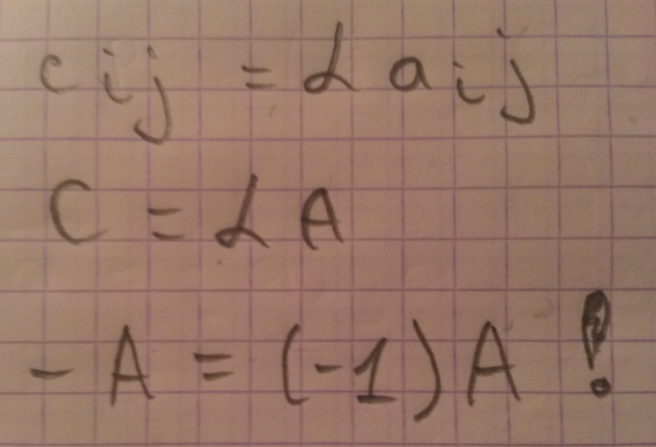 cij = α aij
C = α A
- A = (-1) A !